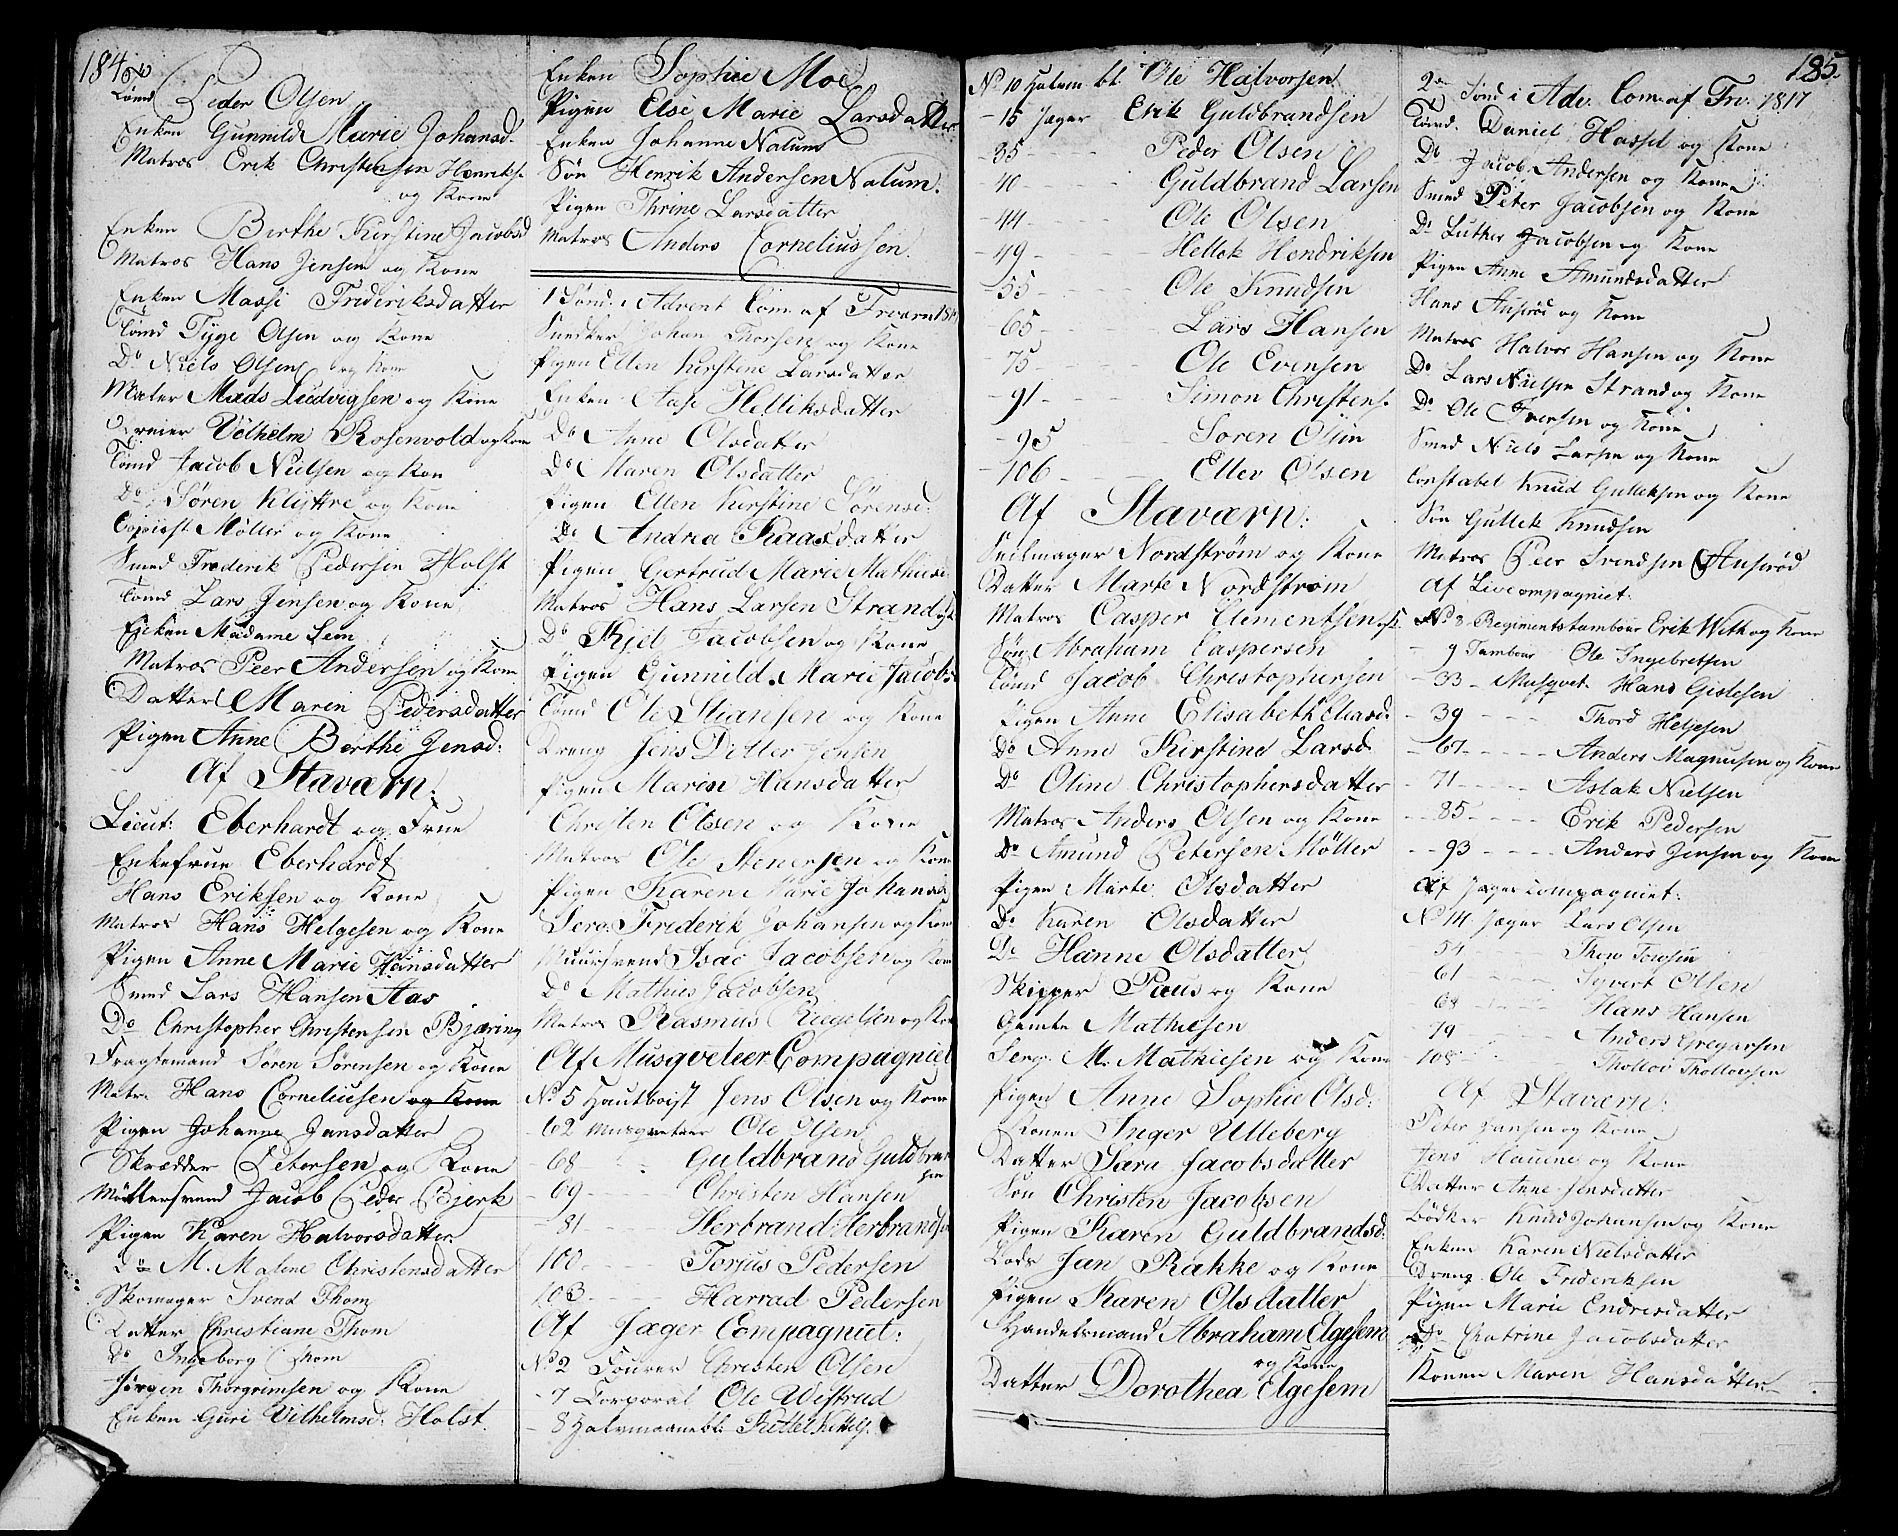 184
Tømd Peder Olsen
Enken Gunnild Marie Johansd.
Matros Erik Christensen Henriks.
og Kone
Enken Birthe Kirstine Jacobsd
Matros Hans Jensen og Kone
Enken Massi Frideriksdatter
Tømd Tyge Olsen og Kone
Do Niels Olsen og Kone
Maler Mads Ludvigsen og Kone
Vilhelm Rosenvold og Kone
Tømd Jacob Nielsen og Kone
Do Søren Klyttre og Kone
Copiist Møller og Kone
Smed Frederik Pedersen Holst
Tømd Lars Jensen og Kone
Enken Madame Lem
Matros Peer Andersen og Kone
Datter Maren Pedersdatter
Pigen Anne Berthe Jensd:
Af Staværn:
Lieut: Eberhardt og Frue
Enkefrue Eberhardt
Hans Eriksen og Kone
Matros Hans Helgesen og Kone
Pigen Anne Marie Hansdatter
Smed Lars Hansen Aas
Do Christopher Christensen Bjøring
Fragtemand Søren Sørensen og Kone
Matr. Hans Corneliusen og Kone
Pigen Johanne Jansdatter
Skrædder Petersen og Kone
Møllersvend Jacob Peder Bjerk
Pigen Karen Halvorsdatter
do M. Malene Christensdatter
Skomager Svend Thom
Datter Christiane Thom
Do Ingeborg Thom
Jørgen Thorgrimsen og Kone
Enken Guri Vilhelmsd: Holst.
Enken Sophie Moe
Pigen Else Marie Larsdatter
Enken Johanne Nalum
Søn Henrik Andersen Nalum.
Pigen Thrine Larsdatter
Matros Anders Corneliussen.
1 Sønd: Advent Com: af Frværn 1817
Snedker Johan Thorsen og Kone
Pigen Ellen Kirstine Larsdatter
Enken Aase Helliksdatter
Do Anne Olsdatter
Do Maren Olsdatter
Pigen Ellen Kirstine Sørensd:
Do Andrea Kaasdatter
Pigen Gertrud Marie Mathiesd
Matros Hans Larsen Strand og K
Do Kjel Jacobsen og Kone
Pigen Gunnild Marie Jacobs
Tømd Ole Stiansen og Kone
Dreng Jens Ditler Jensen
Pigen Maren Hansdatter
Christen Olsen og Kone
Matros Ole Stenersen og Kone
Pigen Karen Marie Johansd
Serg. Friderik Johansen og Kone
Muursvend Isac Jacobsen og Kone
Do Mathies Jacobsen
Matros Rasmus og Kone
Af Musqveteer Compagniet
No 5 Hautboist Jens Olsen og Kone
- 62 Musqveteer Ole Olsen
- 68 - Guldbrand Guldbrand
sen
- 69 - Christen Hansen
- 81 - Herbrand Herbrands
100 - Torius Pedersen
103 - Harrad Pedersen
Af Jæger Compagniet:
No 2 Fourer Christen Olsen
- 7 Corporal Ole Wistrud
- 8 Halvmaanebl: Kittel Kittels.
185.
No 10 Halvm bl. Ole Halvorsen
- 15 Jæger Erik Guldbrandsen
- 35 - Peder Olsen
- 40 - Guldbrand Larsen
- 44 - Ole Olsen
- 49 - Hellek Hendriksen
- 55 - Ole Knudsen
- 65 - Lars Hansen
- 75 - Ole Evensen
- 91 - Simon Christens.
- 95 - Søren Olsen
- 106 - Ellev Olsen
Af Staværn:
Seilmager Nordstrøm og Kone
Datter Marte Nordstrøm
Matros Casper Clementsen og K.
Søn Abraham Caspersen
Tømd Jacob Christophersen
Pigen Anne Elisabeth Eliasd.
Do Anne Kirstine Larsd.
Do Oline Christophersdatter
Matros Anders Olsen og Kone
Do Amund Petersen Møller
Pigen Marte Olsdatter
Do Karen Olsdatter
Do Hanne Olsdatter
Skipper Paus og Kone
Gamle Mathiesen
Serg. M. Mathiesen og Kone
Pigen Anne Sophie Olsd:
Konen Inger Ulleberg
Datter Sara Jacobsdatter
Søn Christen Jacobsen
Pigen Karen Guldbrandsd:
Lods Jan Rakke og Kone
Pigen Karen Olsdatter
Handelsmand Abraham Elgesem
og Kone
Datter Dorothea Elgesem
2den Sønd i Adv. Com: af Fr: 1817
Tømd. Daniel Hassel og Kone
Do Jacob Andersen og Kone
Smed Peter Jacobsen og Kone
Do Luther Jacobsen og Kone
Pigen Anne Amundsdatter
Hans Ansrød og Kone
Matros Halvor Hansen og Kone
Do Lars Nielsen Strand og Kone
Do Ole Iversen og Kone
Smed Niels Larsen og Kone
Constabel Knud Gulleksen og Kone
Søn Gullek Knudsen
Matros Peer Svendsen Ansrød
Af Livcompagniet:
No 3 Regimentstambour Erik With og Kone
- 9 Tambour Ole Ingebretsen
- 33 - Musqvet. Hans Gislesen
- 39 - Thord Helgesen
- 67 - Anders Magnusen og Kone
- 71 - Aslak Nielsen
- 85 - Erik Pedersen
- 93 - Anders Jensen og Kone
Af Jægercompagniet:
No 14 Jæger Lars Olsen
54 Thow Towsen
61 Syvert Olsen
- 64 Hans Hansen
- 79 Anders Gregersen
- 108 Thollov Thollovsen
Af Staværn:
Peter Hansen og Kone
Jens Hauene og Kone
Datter Anne Jensdatter
Bødker Knud Johansen og Kone
Enken Karen Nielsdatter
Dreng Ole Frideriksen
Pigen Marie Endresdatter
Do Chatrine Jacobsdatter
Konen Maren Hansdatter